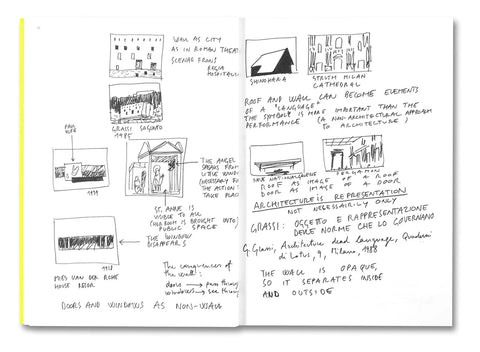 WALL AS CITY
AS IN ROMAN THEATRE
SCENAE FRONS
REGIA
HOSPITALIA
GRASSI SAGUNTO
1985
PAUL
KLEE
1929
THE ANGEL
SPEAKS FROM
LITTLE WINDOW
(NECESSARY FOR
THE ACTION TO
TAKE PLACE
ST. ANNE IS
VISIBLE TO ALL
(OUR ROOM IS BROUGHT INTO
PUBLIC SPACE
THE WINDOW
DISAPPEARS
1928
MIES VAN DER ROHE
HOUSE
The consequences of
the wall:
doors → pass through
windows → see through
DOORS AND WINDOWS AS NON-WALL
SHINOHARA
STUDIO MILAN
CATHEDRAL
ROOF AND WALL CAN BECOME ELEMENTS
OF A "LANGUAGE"
THE SYMBOL IS MORE IMPORTANT THAN THE
PERFORMANCE (A NON-ARCHITECTURAL APPROACH
TO ARCHITECTURE)
NEUE NATIONALGALERIE
PERGAMON
ROOF AS IMAGE OF A ROOF
DOOR AS IMAGE OF A DOOR
ARCHITECTURE IS REPRESENTATION
NOT NECESSAIRILY ONLY
GRASSI: OGGETTO E RAPPRESENTAZIONE
DELLE NORME CHE LO GOVERNANO
G. Grassi, Architecture dead language, Quaderni
di Lotus, 9, Milano, 1988
THE WALL IS OPAQUE,
SO IT SEPARATES INSIDE
AND OUTSIDE